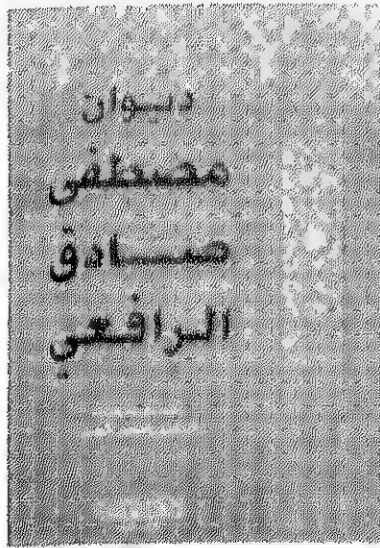 ديوان
مصطفى
صادق
الرافعي